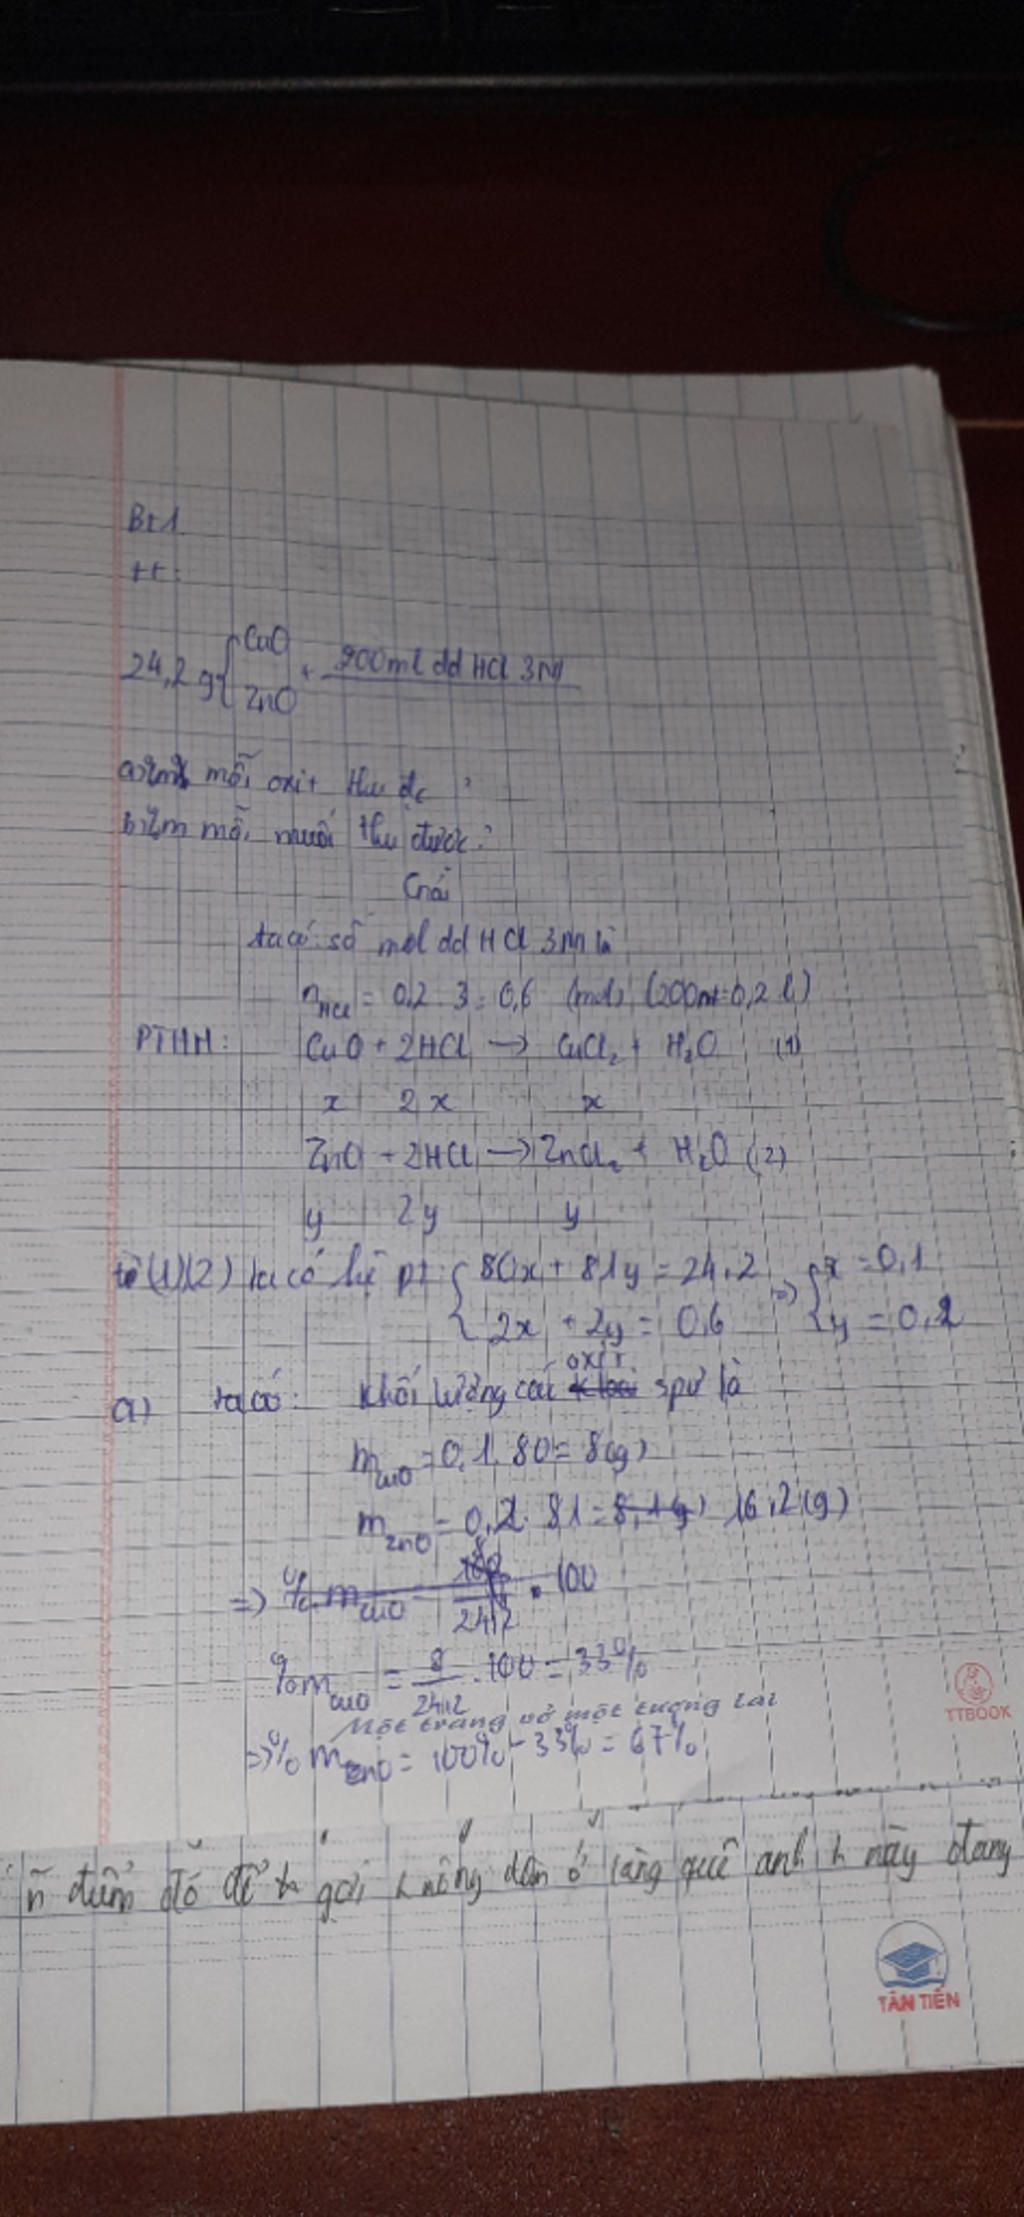 Bt1
tt:
24,2 g { CuO
ZnO + 200ml dd HCl 3M
a) mỗi oxit thu đc ?
b) %m mỗi muối thu được ?
Giải
ta có: số mol dd HCl 3M là
nHCl = 0,2 . 3 = 0,6 (mol) (200ml = 0,2 l)
PTHH: CuO + 2HCl → CuCl₂ + H₂O (1)
x 2x x
ZnO + 2HCl → ZnCl₂ + H₂O (2)
y 2y y
từ (1)(2) ta có hệ pt { 80x + 81y = 24,2 => { x = 0,1
2x + 2y = 0,6 y = 0,2
oxit
a) ta có: khối lượng các k loai spư là
mCuO = 0,1 . 80 = 8(g)
mZnO = 0,2 . 81 = 8,1 g) 16,2 (g)
=> % mCuO = 8/24,2 . 100
% mCuO = 8/24,2 . 100 = 33%
Một trang vở một tương lai
=> % mZnO = 100% - 33% = 67%
TTBOOK
đó để gọi dân ở làng quê anh h này đang
TÂN TIẾN